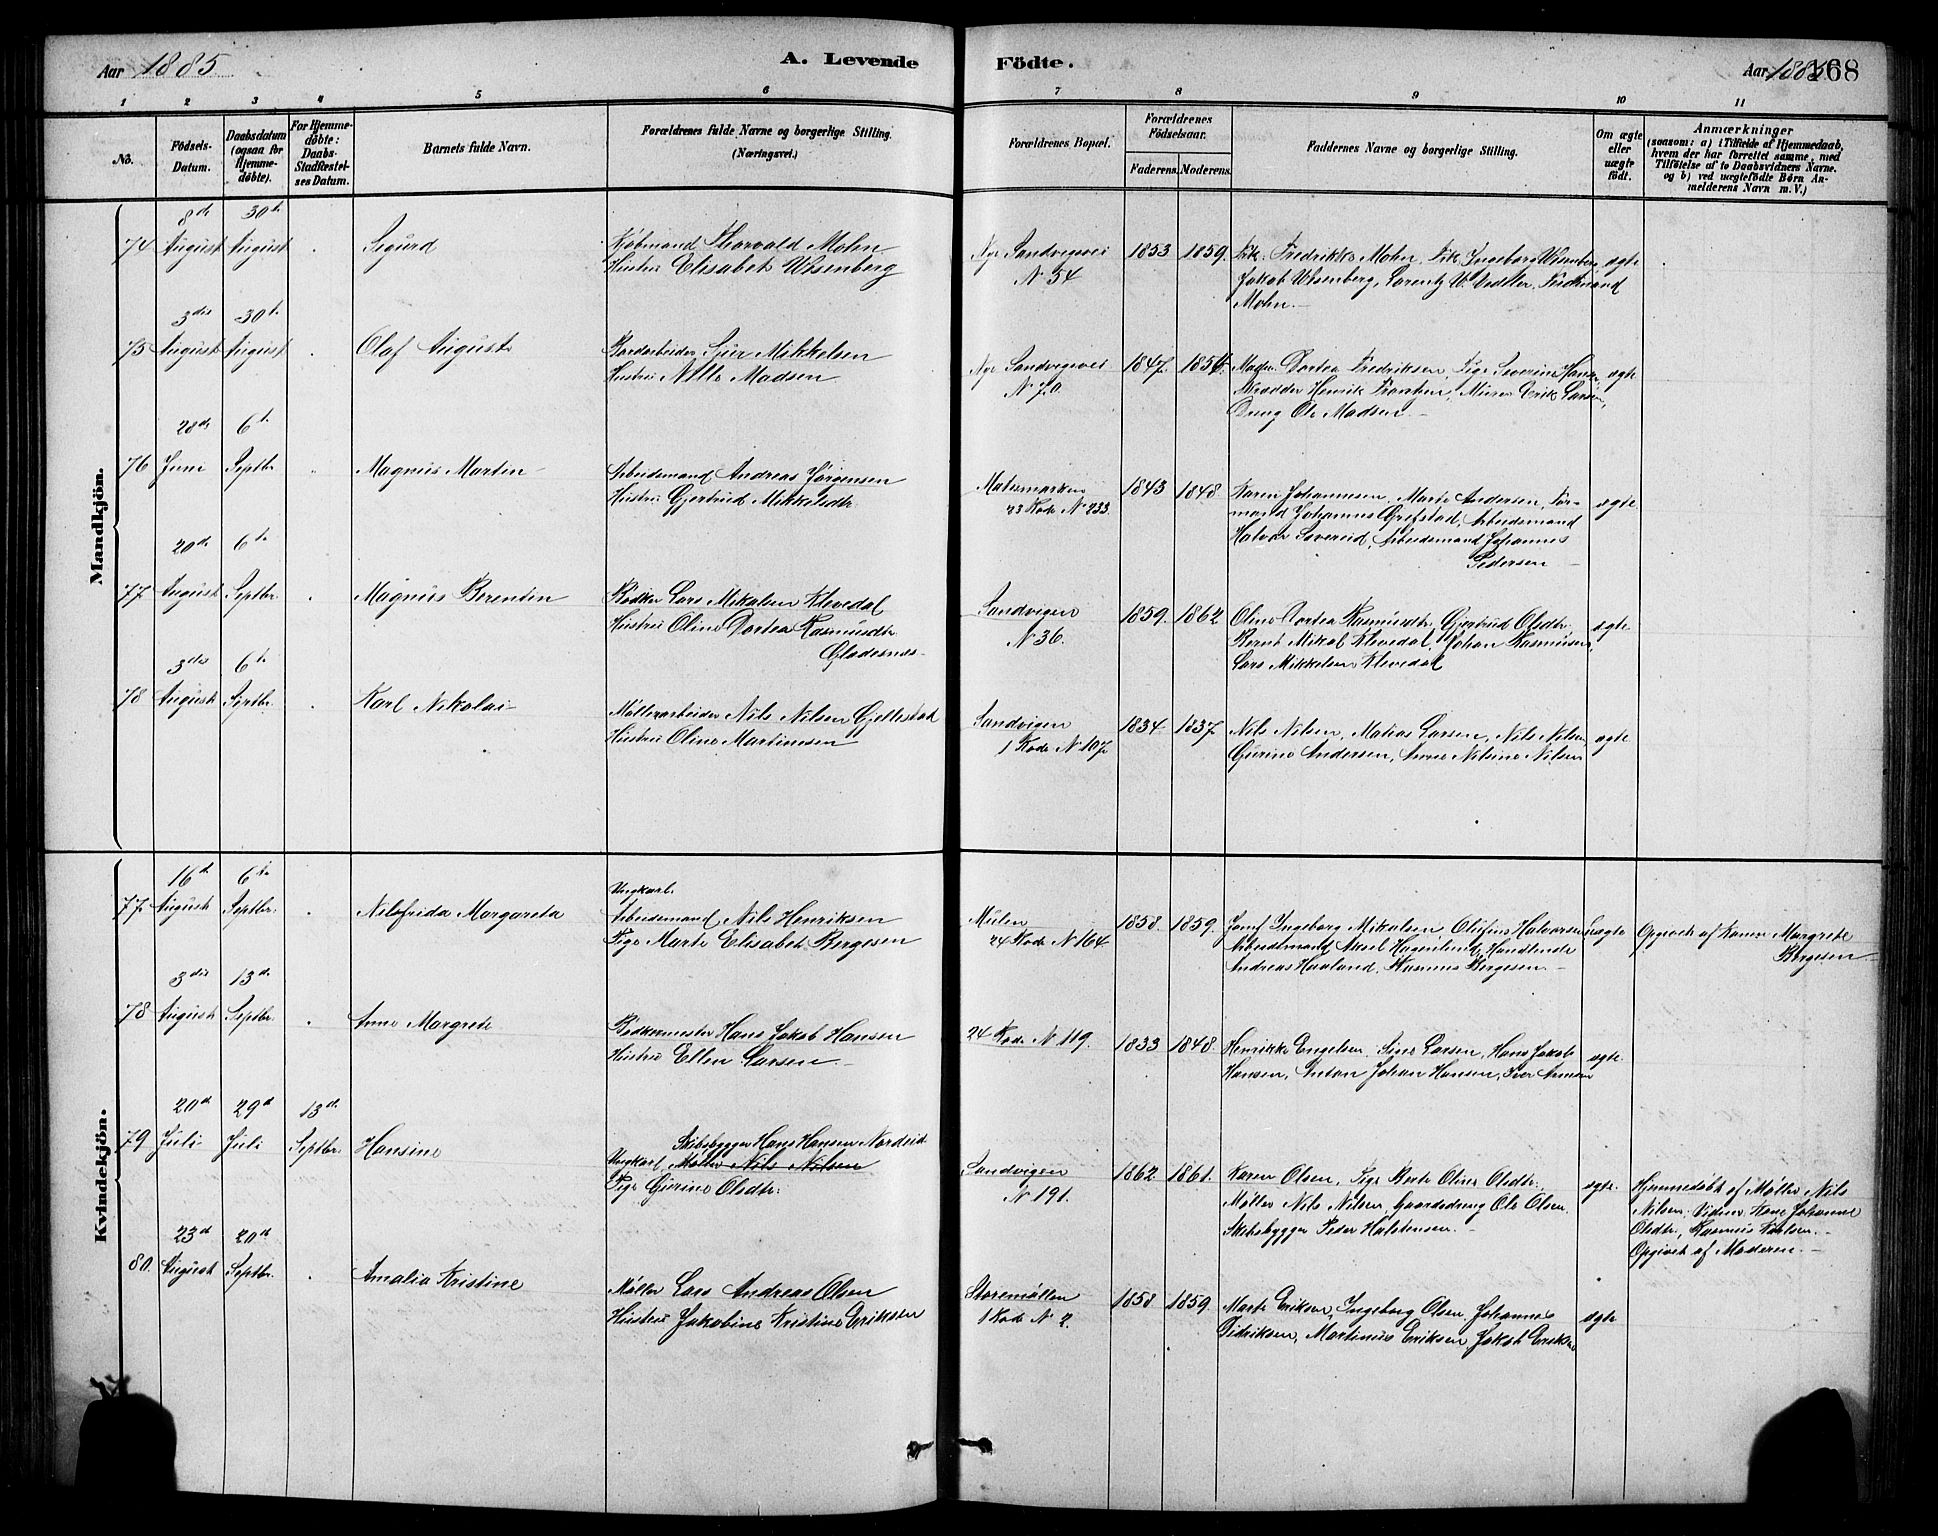 Aar 1885.
A. Levende Födte.
Aar 1885.
168
1 2 3 4 5 6 7 8 9 10 11
No.
Födsels-
Datum.
Daabsdatum
(ogsaa for
Hjemme-
döbte).
For Hjemme-
döbte:
Daabs-
Stadfæstel-
ses Datum.
Barnets fulde Navn.
Forældrenes fulde Navne og borgerlige Stilling.
(Næringsvei.)
Forældrenes Bopæl.
Forældrenes
Födselsaar.
Faderens. Moderens.
Faddernes Navne og borgerlige Stilling.
Om ægte
eller
uægte
födt.
Anmærkninger
(saasom: a) i Tilfælde af Hjemmedaab,
hvem der har forrettet samme, med
Tilföielse af to Daabsvidners Navne.
og b) ved uægtefödte Börn An-
melderens Navn m. V.)
Mandkjön.
8de 30te
74 August August Sigurd
Kjøbmand Thorvald Mohn
Hustru Elisabet Wesenberg
Nye Sandvigsvei
N 54
1853 1859.
Frk. Fredrikke Mohn, Frk. Ingeborg Wesenberg,
Jakob Wesenberg, Lorentz W. Vedeler, Ferdinand
Mohn.
ægte
3die 30te
75 August August Olaf August
Sjur Mikkelsen
Hustru Nille Madsen
Nye Sandvigsvei
N 70.
1847. 1854.
Dortea Fredriksen, Pige Severine Hansen,
Skrædder Henrik, Murer Erik Larsen,
Dreng Ole Madsen
ægte
28de 6te
76 Juni Septbr. Magnus Martin
Arbeidsmand Andreas Jørgensen
Hustru Gjertrud Mikkelsdtr.
23 Rode N 233.
1843 1848.
Karen Johannesen, Marte Andersen, For-
mand Johannes Grefstad, Arbeidsmand
Halvor Sævereid, Arbeidsmand Johannes
Pedersen
ægte
20de 6te
77 August Septbr. Magnus Berentin
Bødker Lars Mikalsen Klevedal
Hustru Oline Dortea Rasmusdtr.
Sandvigen
N 36.
1859. 1862
Oline Dortea Rasmusdtr. Gjertrud Olsdtr.
Bernt Mikal Klevedal, Johan Rasmusen,
Lars Mikkelsen Klevedal
ægte
3die 6te
78 August Septbr. Karl Nikolai
Møllerarbeider Nils Nilsen Gjellestad
Hustru Oline Martinusen
Sandvigen
1 Rode N 107
1834 1837.
Nils Nilsen, Matias Larsen, Nils Nilsen,
Gurine Andersen, Anne Nilsine Nilsen
ægte
Kvindekjön.
16de 6te
77. August Septbr. Nilsfrida Margareta
Ungkarl.
Arbeidsmand Nils Henriksen
Pige Marte Elisabet Børgesen
Mulen
24 Rode N 164
1858. 1859.
Jomf. Ingeborg Mikalsen, Olufine Halvorsen
Arbeidsmand Aksel Hagenlund, Handlende
Andreas Haaland, Rasmus Børgesen
uægte
Opgivet af Konen Margrete
Børgesen
3die 13de
78 August Septbr. Anne Margrete
Bødkermester Hans Jakob Hansen
Hustru Ellen Larsen
24 Rode N 119.
1833 1848.
Henrikke Engelsen, Sine Larsen, Hans Jakob
Hansen, Anton Johan Hansen, Iver
ægte.
20de 29de 13de
79 Juli Juli Septbr. Hansine
Skibsbygger Hans Hansen Nordeid
Ungkarl Møller Nils Nilsen
Pige Gurine Olsdtr.
Sandvigen
N 191.
1862 1861.
Karen Olsen, Pige Berte Oline Olsdtr.,
Møller Nils Nilsen, Gaardsdreng Ole Olsen,
Skibsbygger Peder Halstensen.
ægte.
Hjemmedøbt af Møller Nils
Nilsen. Vidner Kone Johanne
Olsdtr., Rasmus
Opgivet af Moderen.
23de 20de
80. August Septbr. Amalia Kristine
Møller Lars Andreas Olsen
Hustru Jakobine Kristine Eriksen
Storemøllen
1 Rode N 2.
1858 1859.
Marte Eriksen, Ingeborg Olsen, Johannes
Didriksen, Martinus Eriksen, Jakob Eriksen
ægte